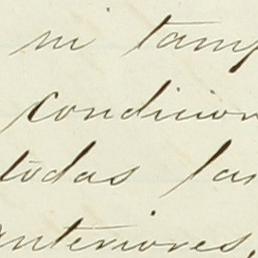 ni tamp
condicion
todas las
anteriores,